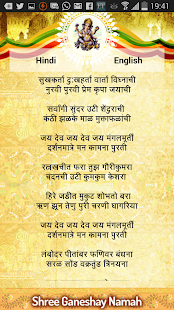 19:41
Hindi English
सुखकर्ता दु:खहर्ता वार्ता विघ्नाची
नुरवी पुरवी प्रेम कृपा जयाची
सर्वांगी सुंदर उटी शेंदुराची
कंठी झळके माळ मुक्ताफळांची
जय देव जय देव जय मंगलमूर्ती
दर्शनमात्रे मन कामना पुरती
रत्नखचीत फरा तुझ गौरीकुमरा
चंदनची उटी कुमकुम केशरा
हिरे जडीत मुकुट शोभतो बरा
ऋण झून तेनु पुरी चरणी घागरिया
जय देव जय देव जय मंगलमूर्ती
दर्शनमात्रे मन कामना पुरती
लंबोदर पीतांबर फणिवर बंधना
सरळ सोंड वक्रतुंड त्रिनयना
Shree Ganeshay Namah